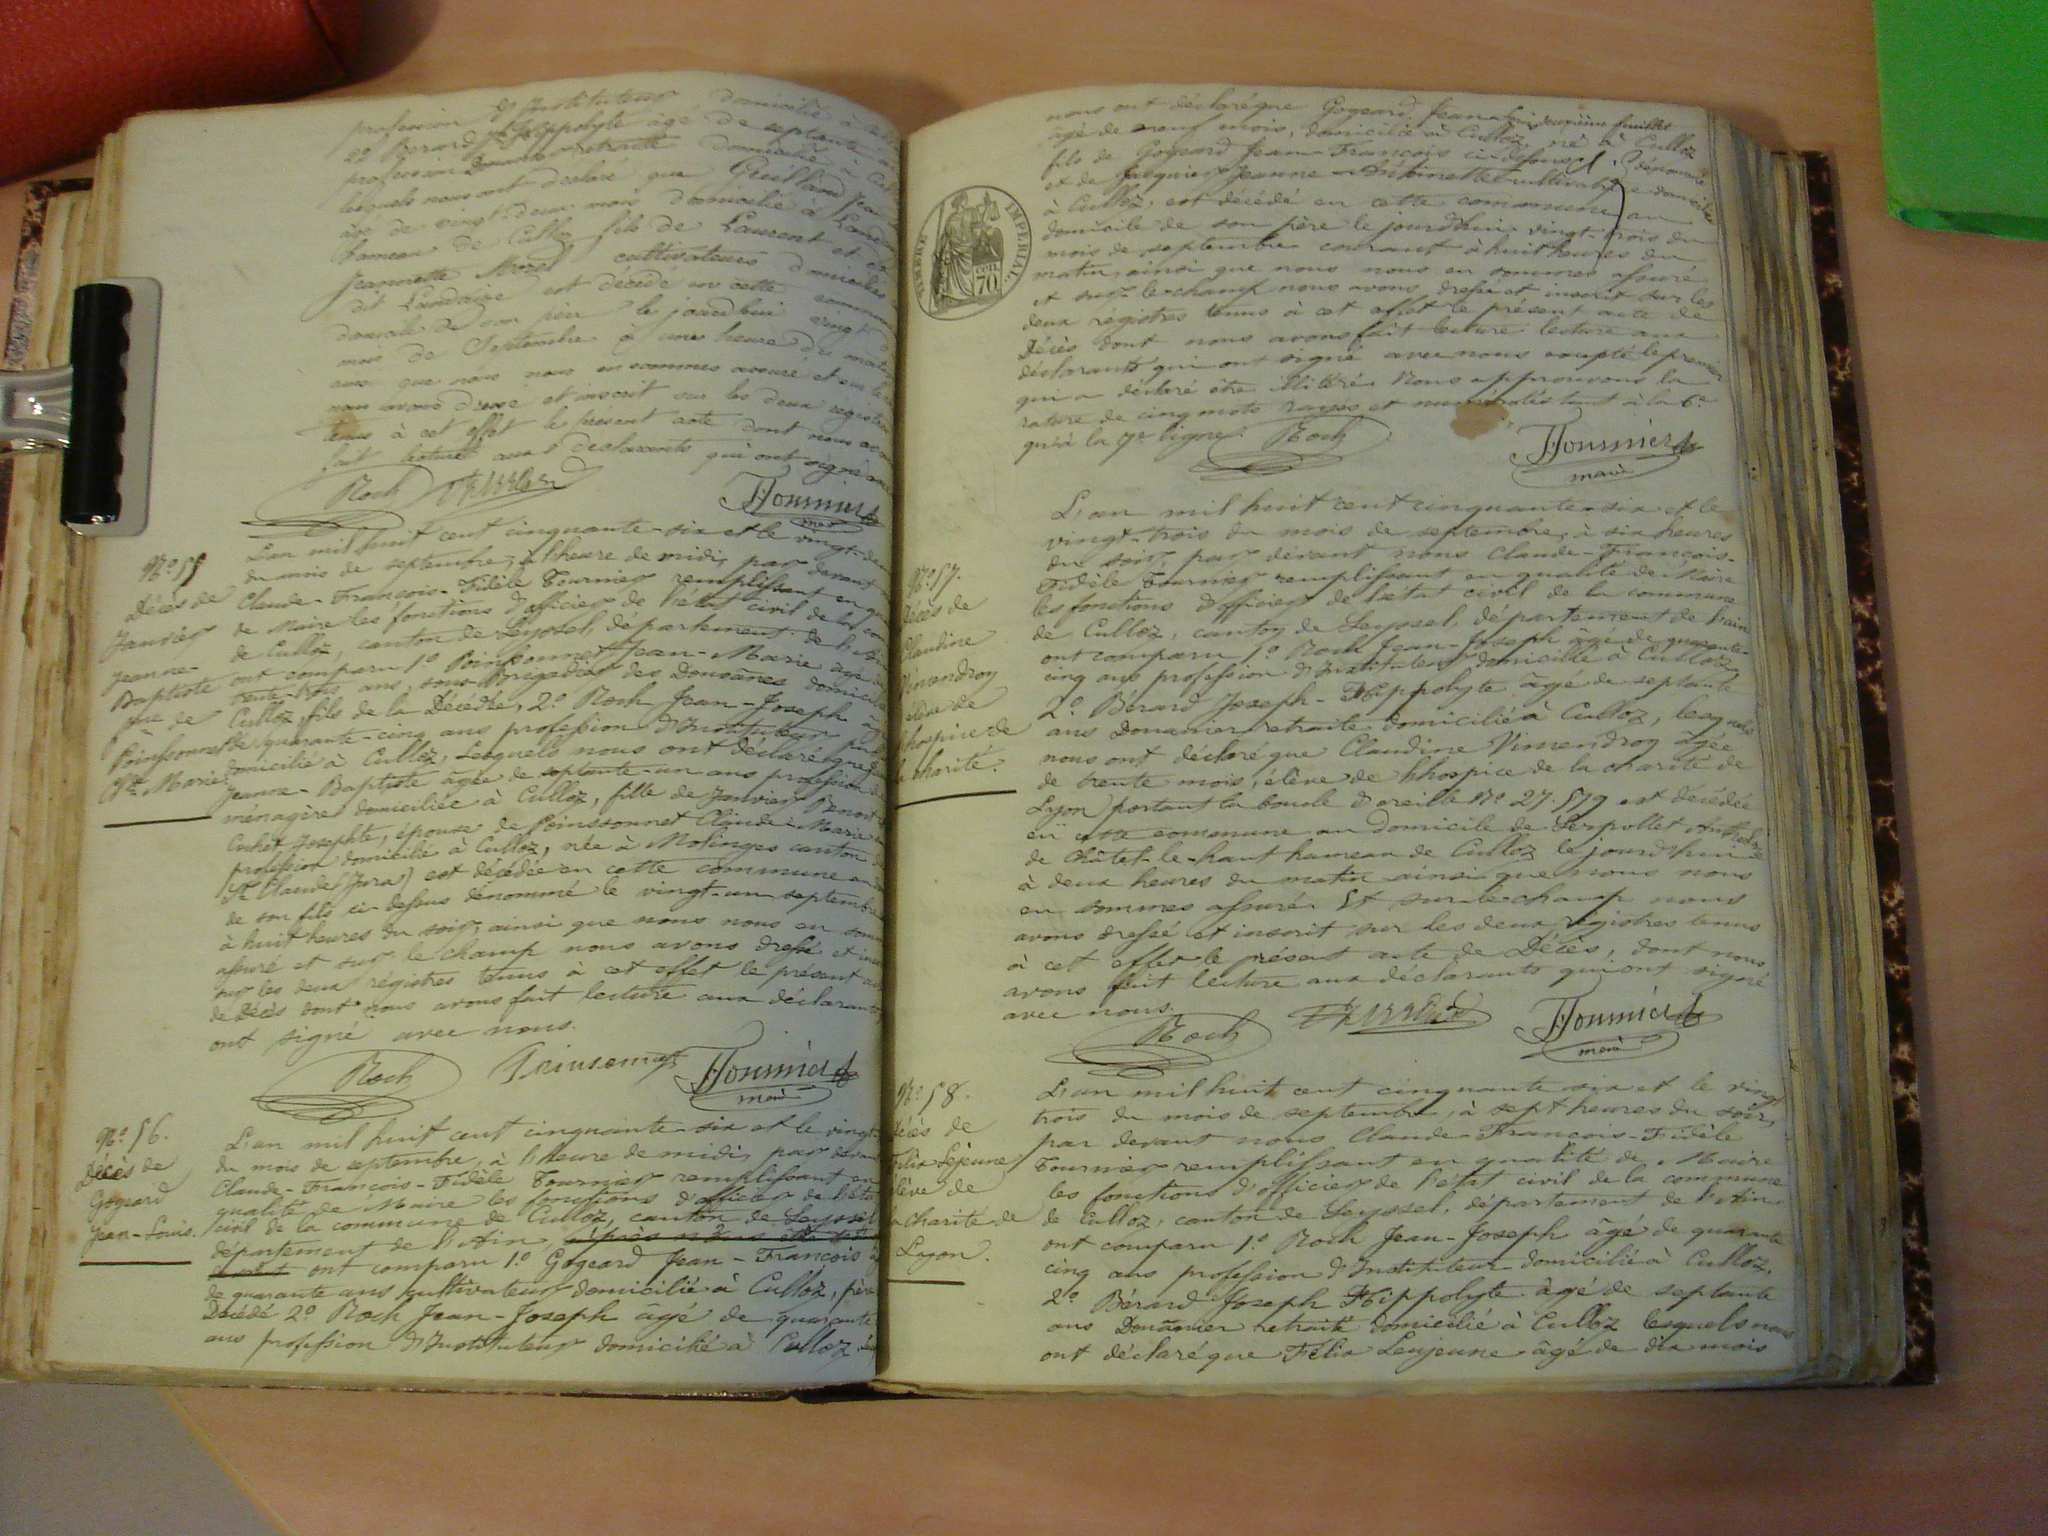 profession d'Instituteur domicilié à
2º Berard Jh Hippolyte âgé de septante
profession Douanier retraité domicilié à
lesquels nous ont déclaré que Guilland Jean
âgé de vingt-deux mois domicilié à
hameau de Culloz fils de Laurent et de
Jeannette cultivateurs domiciliés
dit est décédé en cette commune
domicile de son père le jourd'hui vingt
mois de Septembre à une heure du matin
ainsi que nous nous en sommes assuré et sur le
nous avons dressé et inscrit sur les deux registres
tenus à cet effet le présent acte dont nous avons
fait lecture aux déclarants qui ont signé
Roch Fournier
maire
Nº 55
Décès de
Janvier
Jeanne-
Baptiste
Poinssonnet
Cde Marie
L'an mil huit cent cinquante-six et le vingt-deux
du mois de septembre, à l'heure de midi, par devant
Claude-François-Fidèle Fournier remplissant en
de Maire les fonctions d'officier de l'état civil de la
de Culloz, canton de Seyssel, département de l'Ain
ont comparu 1º Poinssonnet Jean-Marie âgé
trente-trois ans, sous-Brigadier des Douanes domicilié
Culloz, fils de la Décédée, 2º Roch Jean-Joseph
de quarante-cinq ans profession d'Instituteur
domicilié à Culloz, Lesquels nous ont déclaré que
Jeanne-Baptiste âgée de septante-un ans profession
ménagère domiciliée à Culloz, fille de Janvier Benoit
Josephte, épouse de Poinssonnet Claude-Marie
profession domicilié à Culloz, née à Molinges canton
St Claude (Jura) est décédée en cette commune au
de son fils ci-dessus dénommé le vingt-un septembre
à huit heures du soir, ainsi que nous nous en sommes
assuré et sur le champ nous avons dressé et
sur les deux régistres tenus à cet effet le présent acte
de Décès dont nous avons fait lecture aux déclarants
ont signé avec nous.
Roch Fournier
maire
Nº 56.
Décès de
Gogeard
Jean-Louis.
L'an mil huit cent cinquante-six et le vingt-
du mois de septembre, à l'heure de midi, par devant
Claude-François-Fidèle Fournier remplissant en
qualité de Maire les fonctions d'officier de l'état
civil de la commune de Culloz, canton de Seyssel
département de l'Ain,
ont comparu 1º Gogeard Jean-François
de quarante ans cultivateur domicilié à Culloz, père
Décédé 2º Roch Jean-Joseph âgé de quarante
ans profession d'Instituteur domicilié à Culloz
deuxième feuillet
nous ont déclaré que Gogeard Jean
âgé de neuf mois, domicilié à Culloz, né à Culloz
fils de Gogeard Jean-François ci-dessus dénommé
et de Jacquier Jeanne-Antoinette cultivatrice domiciliée
à Culloz, est décédé en cette commune au
domicile de son père le jourd'hui vingt-trois du
mois de septembre courant à huit heures du
matin, ainsi que nous nous en sommes assuré
et sur-le-champ nous avons dressé et inscrit sur les
deux régistres tenus à cet effet le présent acte de
Décès dont nous avons fait lecture lecture aux
déclarants qui ont signé avec nous excepté le premier
qui a déclaré être illitéré. Nous approuvons la
rature de cinq mots rayés et numérotés tant à la 6e
qu'à la 7e ligne. Roch Fournier
maire
TIMBRE IMPERIAL
CEN. 70
Nº 57.
Décès de
Claudine
Vimendroy
élève de
l'hospice de
la charité.
L'an mil huit cent cinquante-six et le
vingt-trois du mois de septembre, à six heures
du soir, par devant nous Claude-François-
Fidèle Fournier remplissant en qualité de Maire
les fonctions d'officier de l'état civil de la commune
de Culloz, canton de Seyssel, département de l'ain
ont comparu 1º Roch Jean-Joseph âgé de quarante-
cinq ans profession d'Instituteur domicilié à Culloz,
2º Bérard Joseph-Hippolyte âgé de septante
ans Douanier retraité domicilié à Culloz, lesquels
nous ont déclaré que Claudine Vimendroy âgée
de trente mois, élève de l'hospice de la charité de
Lyon, portant la boucle d'oreille Nº 27.579 est décédée
en cette commune au domicile de Serpollet
de Châtel-le-haut hameau de Culloz le jourd'hui
à deux heures du matin ainsi que nous nous
en sommes assuré. Et sur-le-champ nous
avons dressé et inscrit sur les deux régistres tenus
à cet effet le présent acte de Décès, dont nous
avons fait lecture aux déclarants qui ont signé
avec nous.
Roch Fournier
maire
Nº 58.
Décès de
Félix Lejeune
élève de
la charité de
Lyon.
L'an mil huit cent cinquante six et le vingt
trois du mois de septembre, à sept heures du soir,
par devant nous Claude-François-Fidèle
Fournier remplissant en qualité de Maire
les fonctions d'officier de l'état civil de la commune
de Culloz, canton de Seyssel, département de l'Ain
ont comparu 1º Roch Jean-Joseph âgé de quarante
cinq ans profession d'Instituteur domicilié à Culloz,
2º Bérard Joseph Hippolyte âgé de septante
ans Douanier retraité domicilié à Culloz lesquels nous
ont déclaré que Félix Leujeune âgé de dix mois